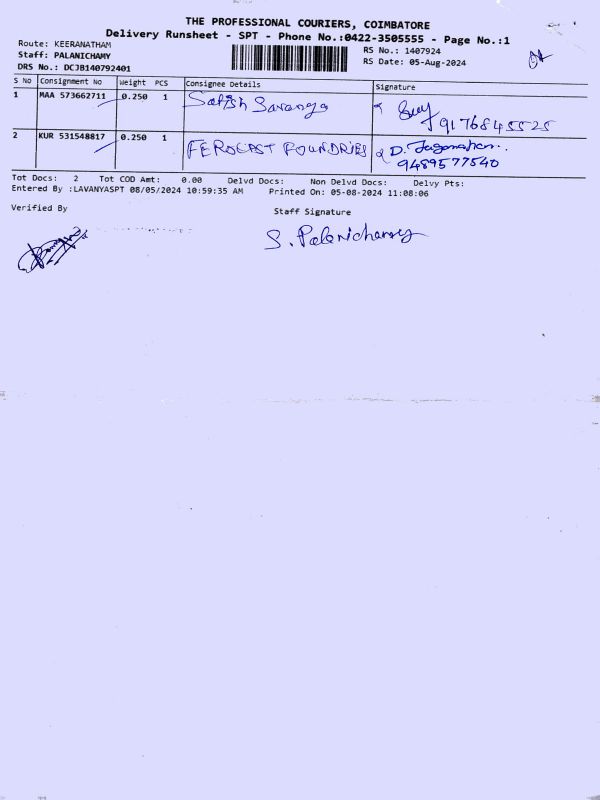 THE PROFESSIONAL COURIERS, COIMBATORE
Delivery Runsheet - SPT - Phone No.:0422-3505555 - Page No.:1
Route: KEERANATHAM RS No.: 1407924
Staff: PALANICHAMY RS Date: 05-Aug-2024
DRS No.: DCJB140792401
S No Consignment No Weight PCS Consignee Details Signature
1 MAA 573662711 0.250 1 Satish Saranga
9176845525
2 KUR 531548817 0.250 1 FEROCAST FOUNDRIES D. Jaganathan.
9489577540
Tot Docs: 2 Tot COD Amt: 0.00 Delvd Docs: Non Delvd Docs: Delvy Pts:
Entered By :LAVANYASPT 08/05/2024 10:59:35 AM Printed On: 05-08-2024 11:08:06
Verified By Staff Signature
S. Palanichamy